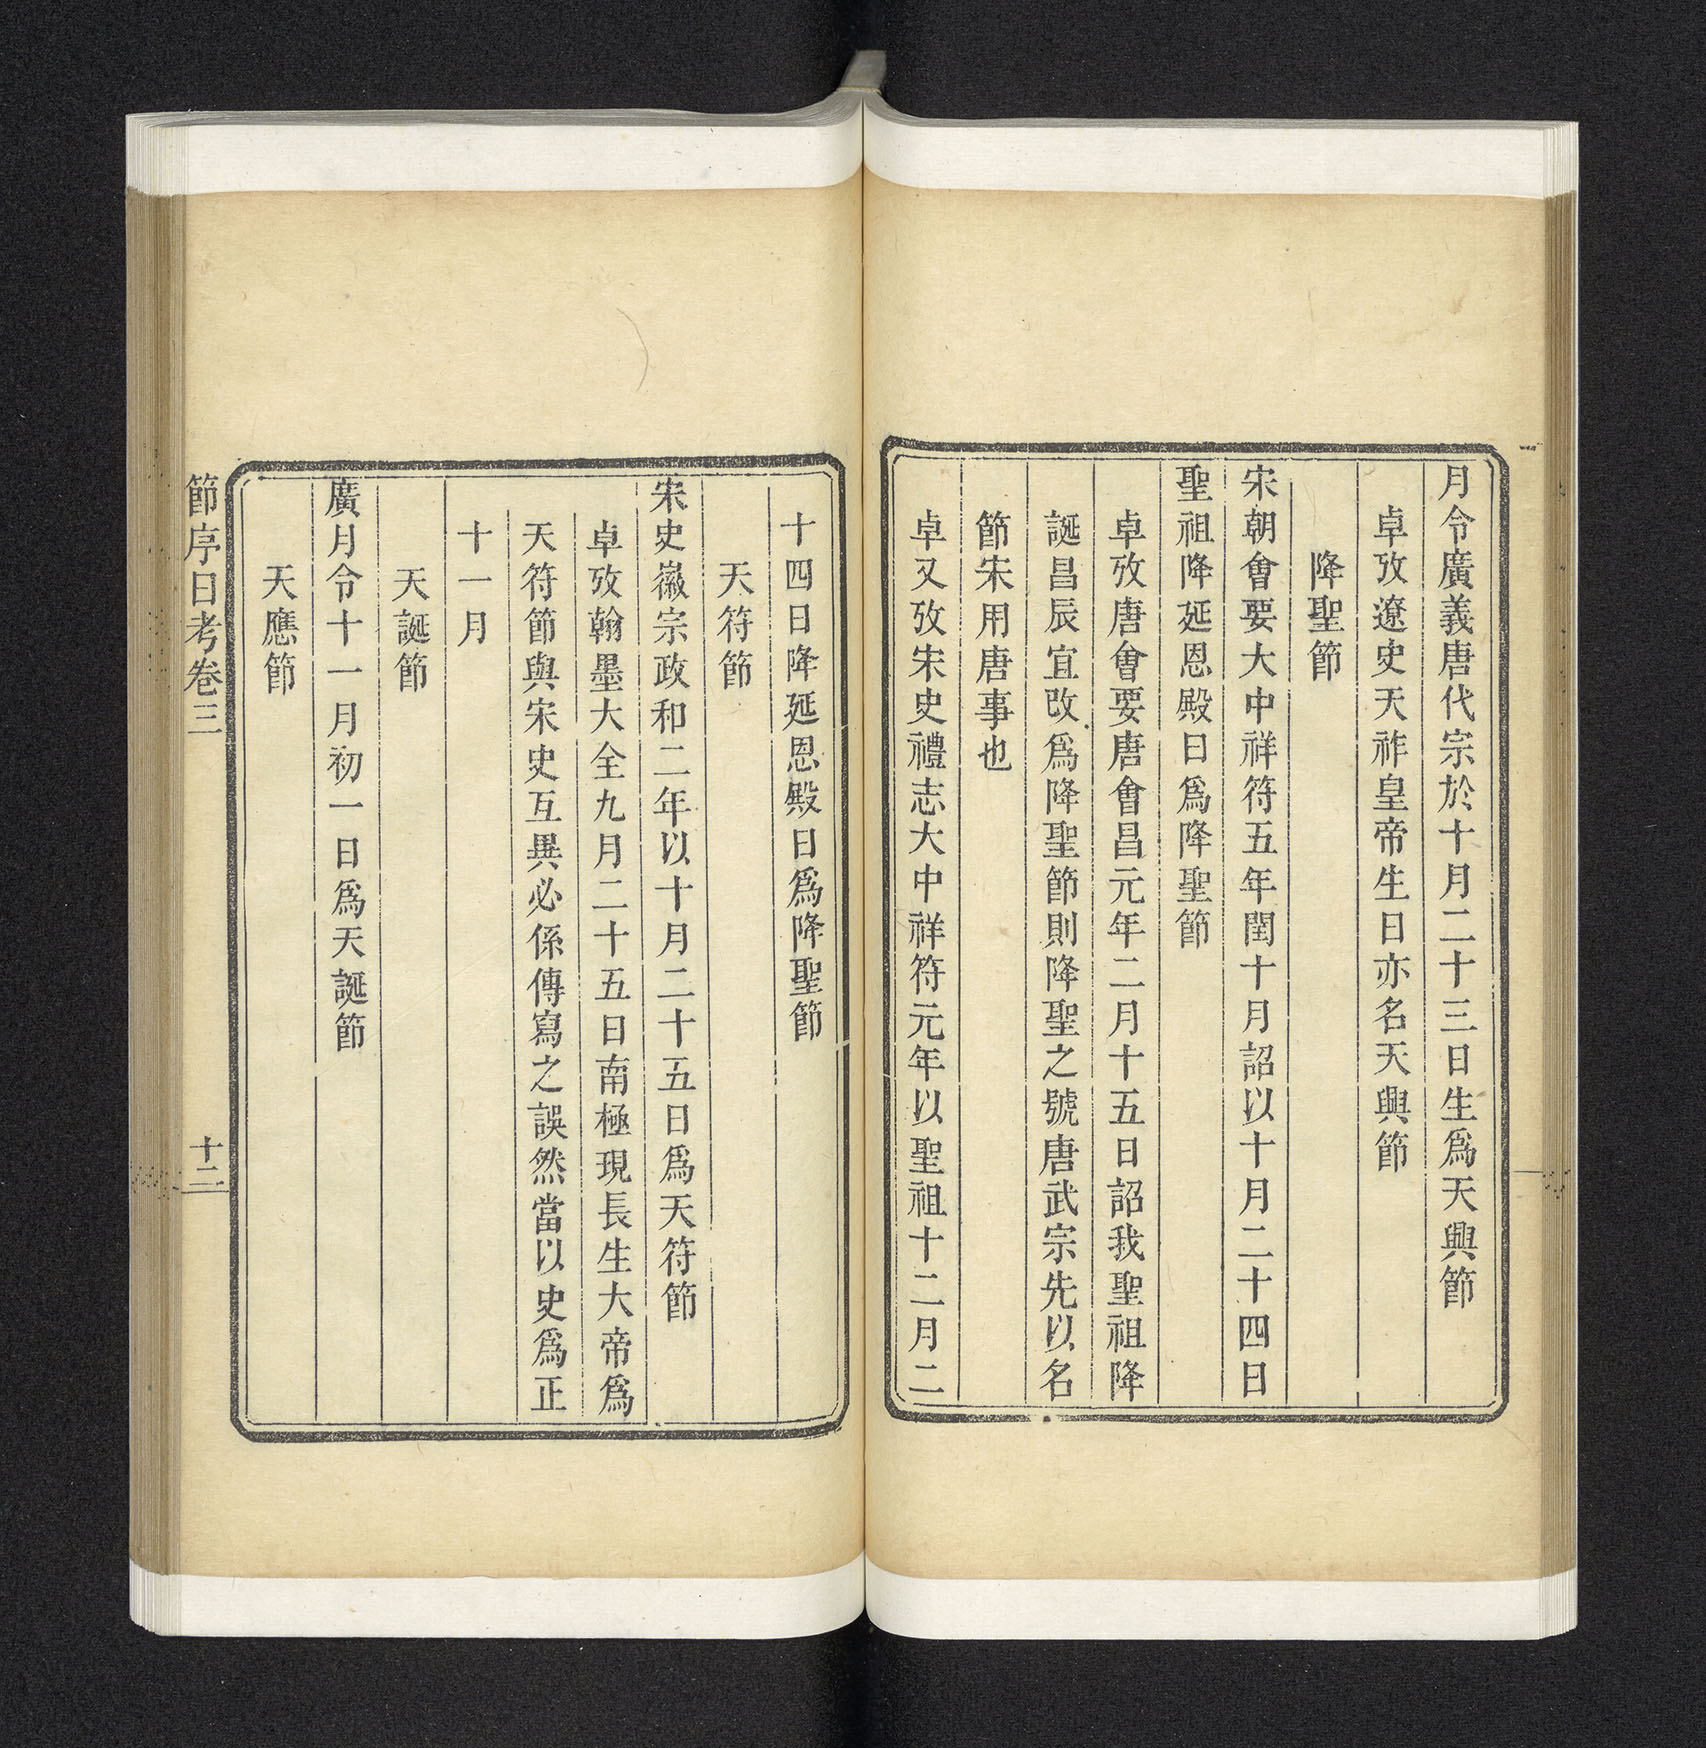 月令廣義唐代宗於十月二十三日生爲天興節
卓攷遼史天祚皇帝生日亦名天興節
降聖節
宋朝會要大中祥符五年閏十月詔以十月二十四日
聖祖降延恩殿日爲降聖節
卓攷唐會要唐會昌元年二月十五日詔我聖祖降
誕昌辰宜改爲降聖節則降聖之號唐武宗先以名
節宋用唐事也
卓又攷宋史禮志大中祥符元年以聖祖十二月二
十四日降延恩殿日爲降聖節
天符節
宋史徽宗政和二年以十月二十五日爲天符節
卓攷翰墨大全九月二十五日南極現長生大帝爲
天符節與宋史互異必係傳寫之誤然當以史爲正
十一月
天誕節
廣月令十一月初一日爲天誕節
天應節
節序日考卷三
十二